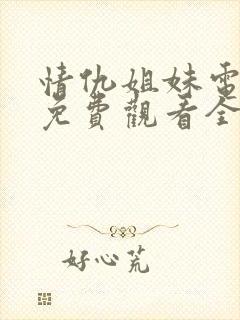 情仇姐妹電
免費觀看全
好心荒